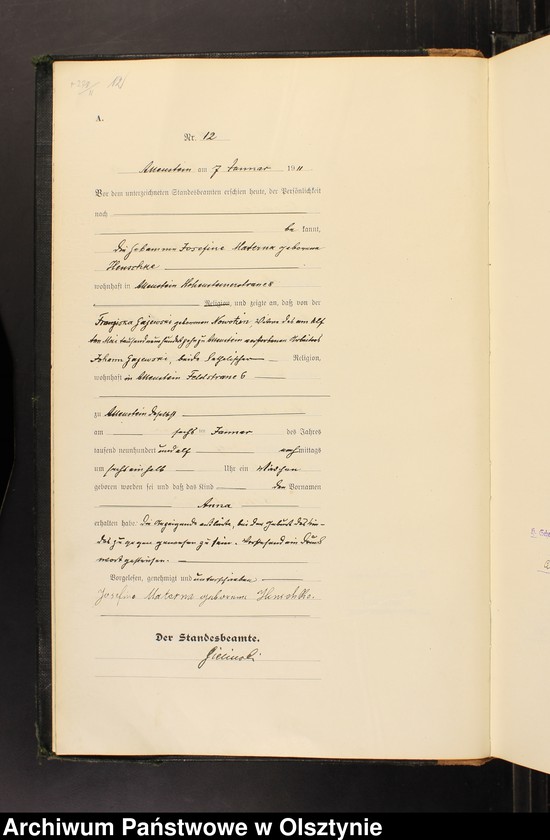 121
A.
Nr. 12
Allenstein am 7 Januar 1911
Vor dem unterzeichneten Standesbeamten erschien heute, der Persönlichkeit
nach
be kannt,
die Hebamme Josefine Materna geborene
Henschke
wohnhaft in Allenstein Hohensteinerstrasse 8
Religion, und zeigte an, daß von der
Franziska Gajewski geborenen Nowotzin, Witwe des am elf
ten Mai tausendneunhundertzehn zu Allenstein verstorbenen Arbeiters
Johann Gajewski, beide katholischer Religion,
wohnhaft in Allenstein Feldstrasse 6
zu Allenstein daselbst
am sechsten Januar des Jahres
tausend neunhundert und elf nachmittags
um sechs einhalb Uhr ein Mädchen
geboren worden sei und daß das Kind den Vornamen
Anna
erhalten habe. Die Anzeigende erklärte, bei der Geburt des Kin-
des zugegen gewesen zu sein. Vorstehend ein Druck
wort gestrichen.
Vorgelesen, genehmigt und unterschrieben
Josefine Materna geborene Henschke.
Der Standesbeamte.
Archiwum Państwowe w Olsztynie